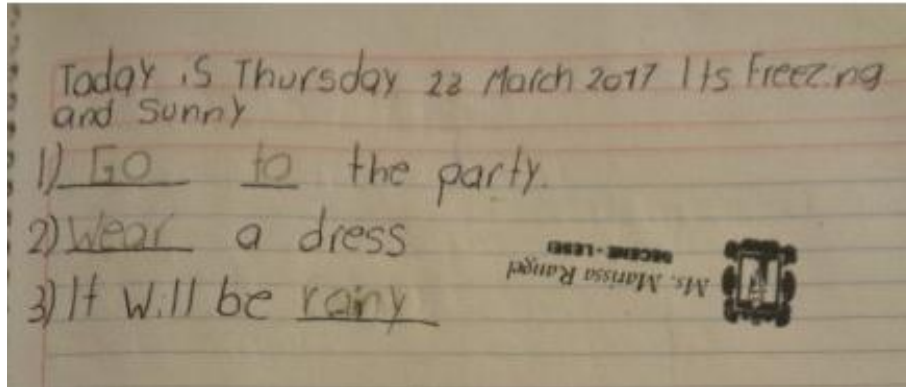 Today is Thursday 23 March 2017 Its Freezing
and Sunny
1) Go to the party.
2) Wear a dress
3) It Will be rainy
Ms. Marissa Rangel